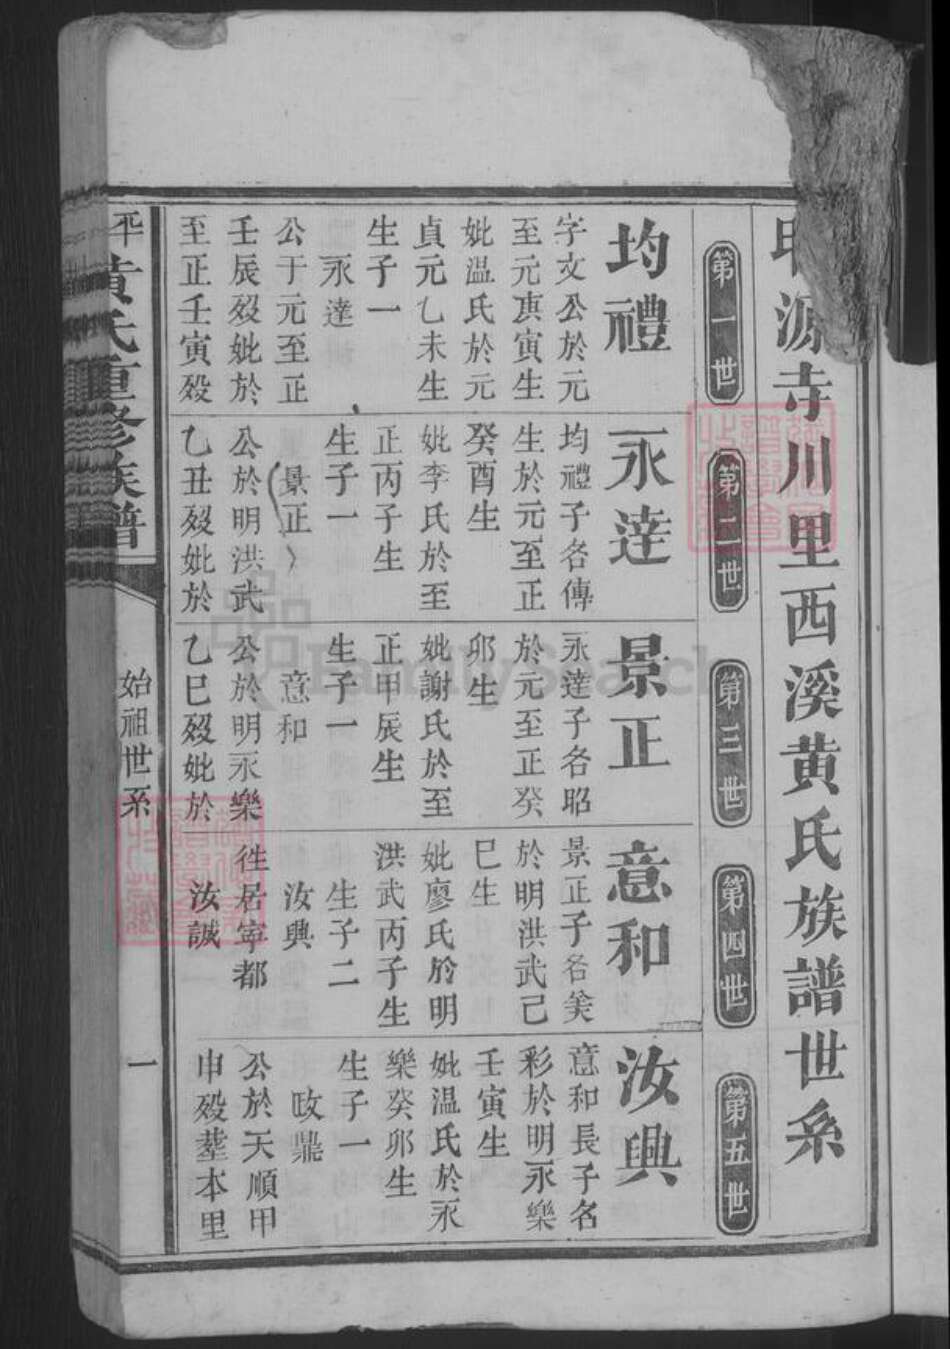 源寺川里西溪黄氏族譜世系
第一世
第二世
第三世
第四世
第五世
均禮
字文公於元
至元庚寅生
妣温氏於元
貞元乙未生
生子一
永達
公于元至正
壬辰殁妣於
至正壬寅殁
永達
均禮子名傳
生於元至正
癸酉生
妣李氏於至
正丙子生
生子一
景正
公於明洪武
乙丑殁妣於
景正
永達子名昭
於元至正癸
卯生
妣謝氏於至
正甲辰生
生子一
意和
公於明永樂
乙巳殁妣於
意和
景正子名美
於明洪武己
巳生
妣廖氏於明
洪武丙子生
生子二
汝興
徃居寕都
汝誠
汝興
意和長子名
彩於明永樂
壬寅生
妣温氏於永
樂癸卯生
生子一
政鼎
公於天順甲
申殁塟本里
平黄氏重修族譜
始祖世系
一
FamilySearch